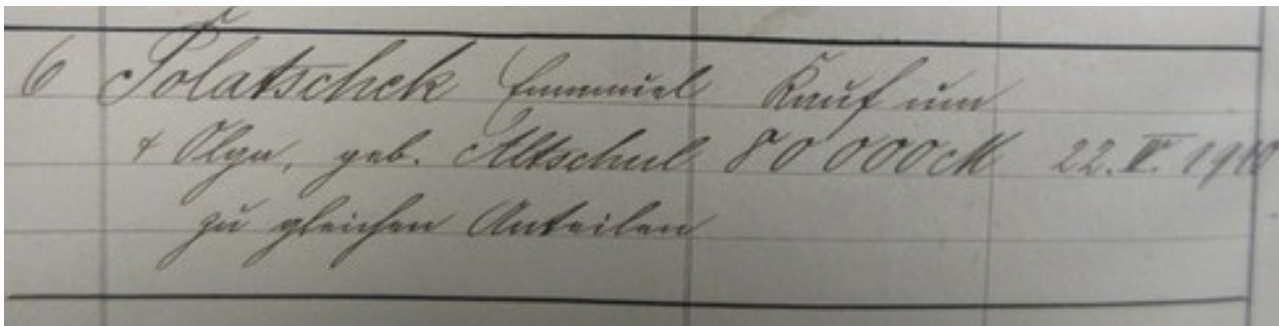 6 Polatschek Emanuel Kauf um
& Olga, geb. Altschul 80 000 M 22. IV. 1910
zu gleichen Anteilen